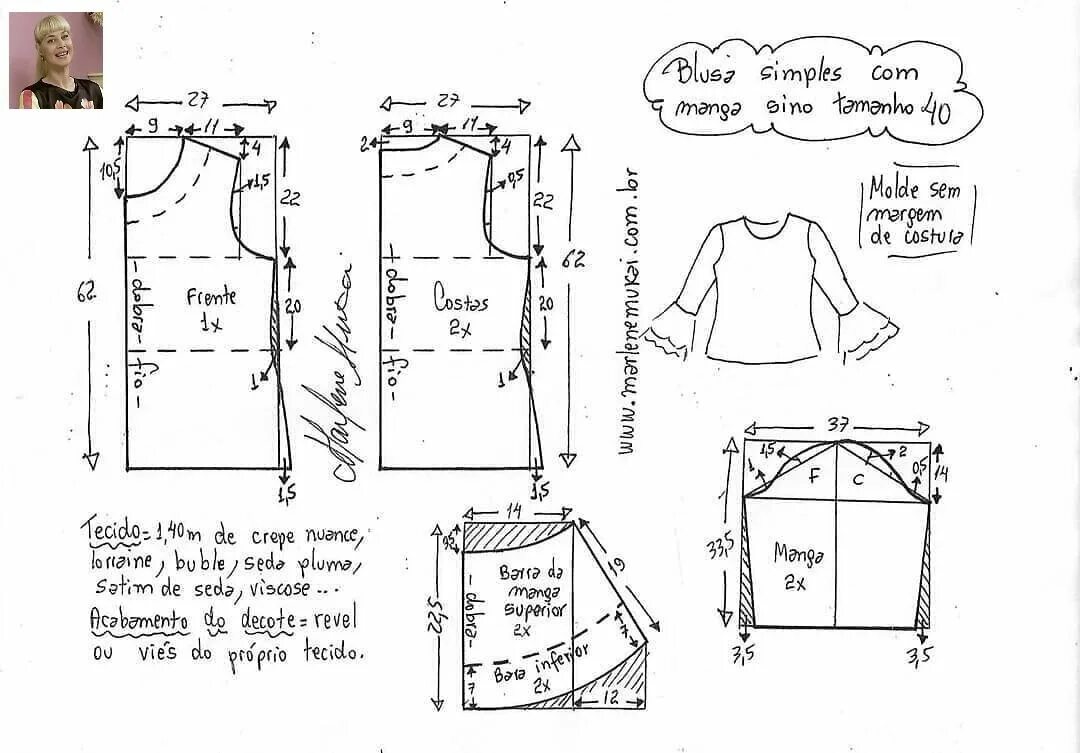 Blusa simples com
manga sino tamanho 40
Molde sem
margem
de costura
www.marlenemukai.com.br
27
9
11
10,5
4
1,5
22
62
20
dobra
fio
Frente
1x
1
1,5
Marlene Mukai
27
9
11
2
4
0,5
22
62
20
dobra
fio
Costas
2x
1
1,5
37
1,5
2
1
0,5
14
F
C
33,5
Manga
2x
3,5
3,5
Tecido = 1,40m de crepe nuance,
lorraine, buble, seda pluma,
satim de seda, viscose...
Acabamento do decote = revel
ou viés do próprio tecido.
14
19
22,5
dobra
Barra da
manga
superior
2x
7
Bara inferior
2x
7
12